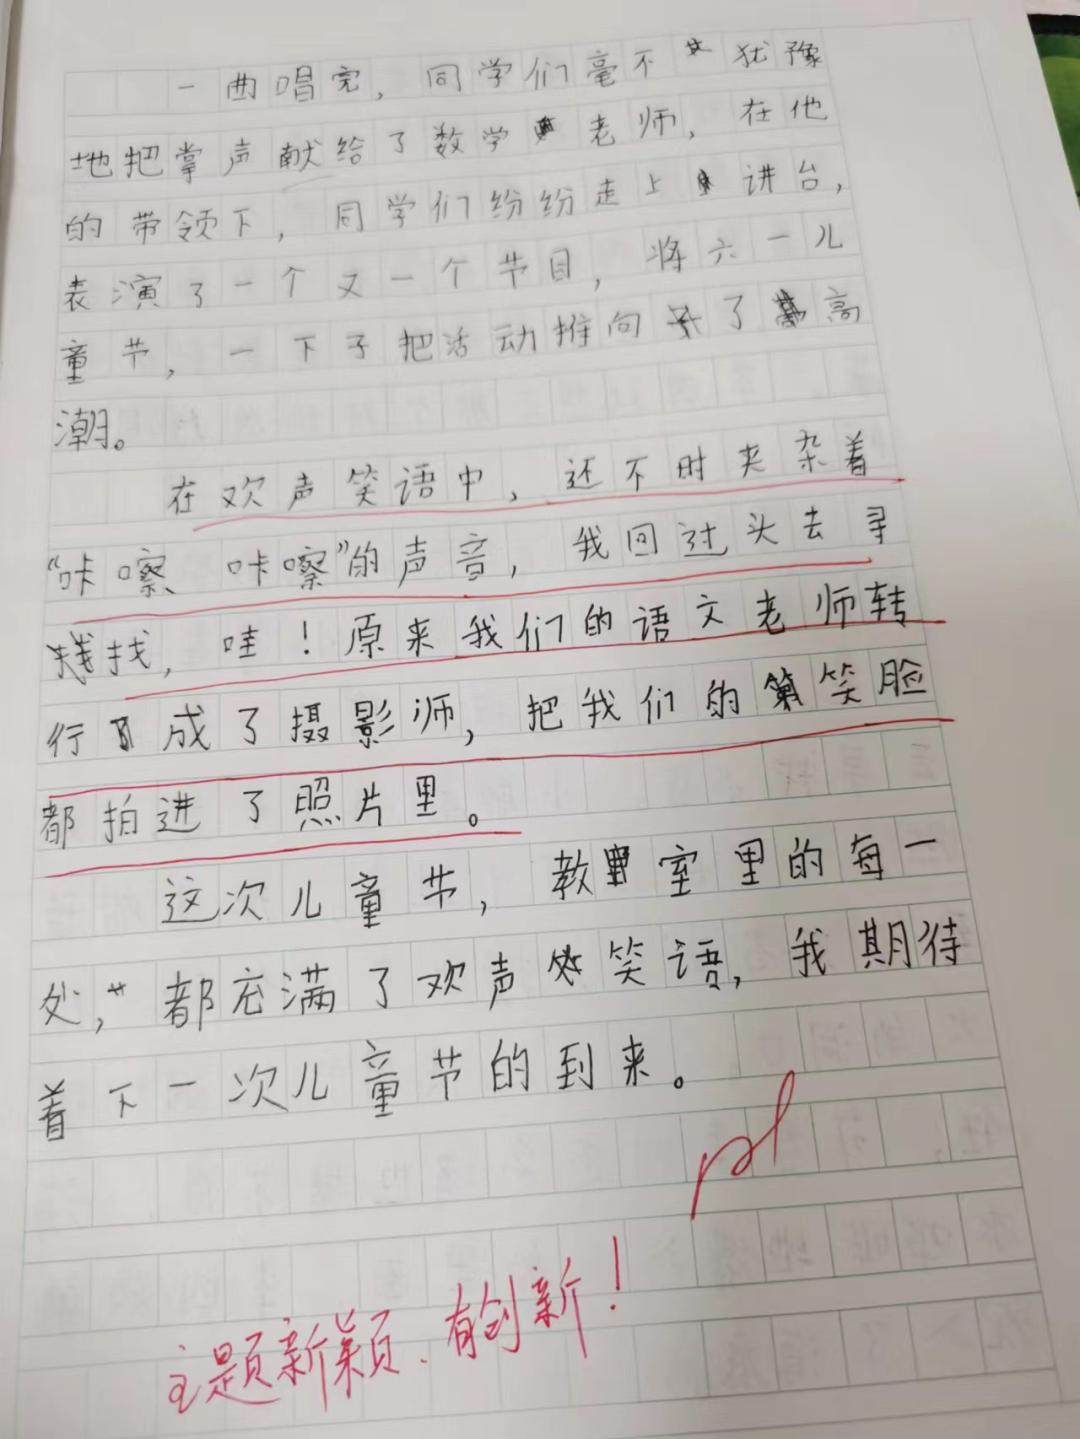 一曲唱完，同学们毫不犹豫
地把掌声献给了数学老师，在他
的带领下，同学们纷纷走上讲台，
表演了一个又一个节目，将六一儿
童节，一下子把活动推向了高
潮。
在欢声笑语中，还不时夹杂着
“咔嚓、咔嚓”的声音，我回过头去寻
找，哇！原来我们的语文老师转
行成了摄影师，把我们的笑脸
都拍进了照片里。
这次儿童节，教室里的每一
处，都充满了欢声笑语，我期待
着下一次儿童节的到来。
主题新颖、有创新！